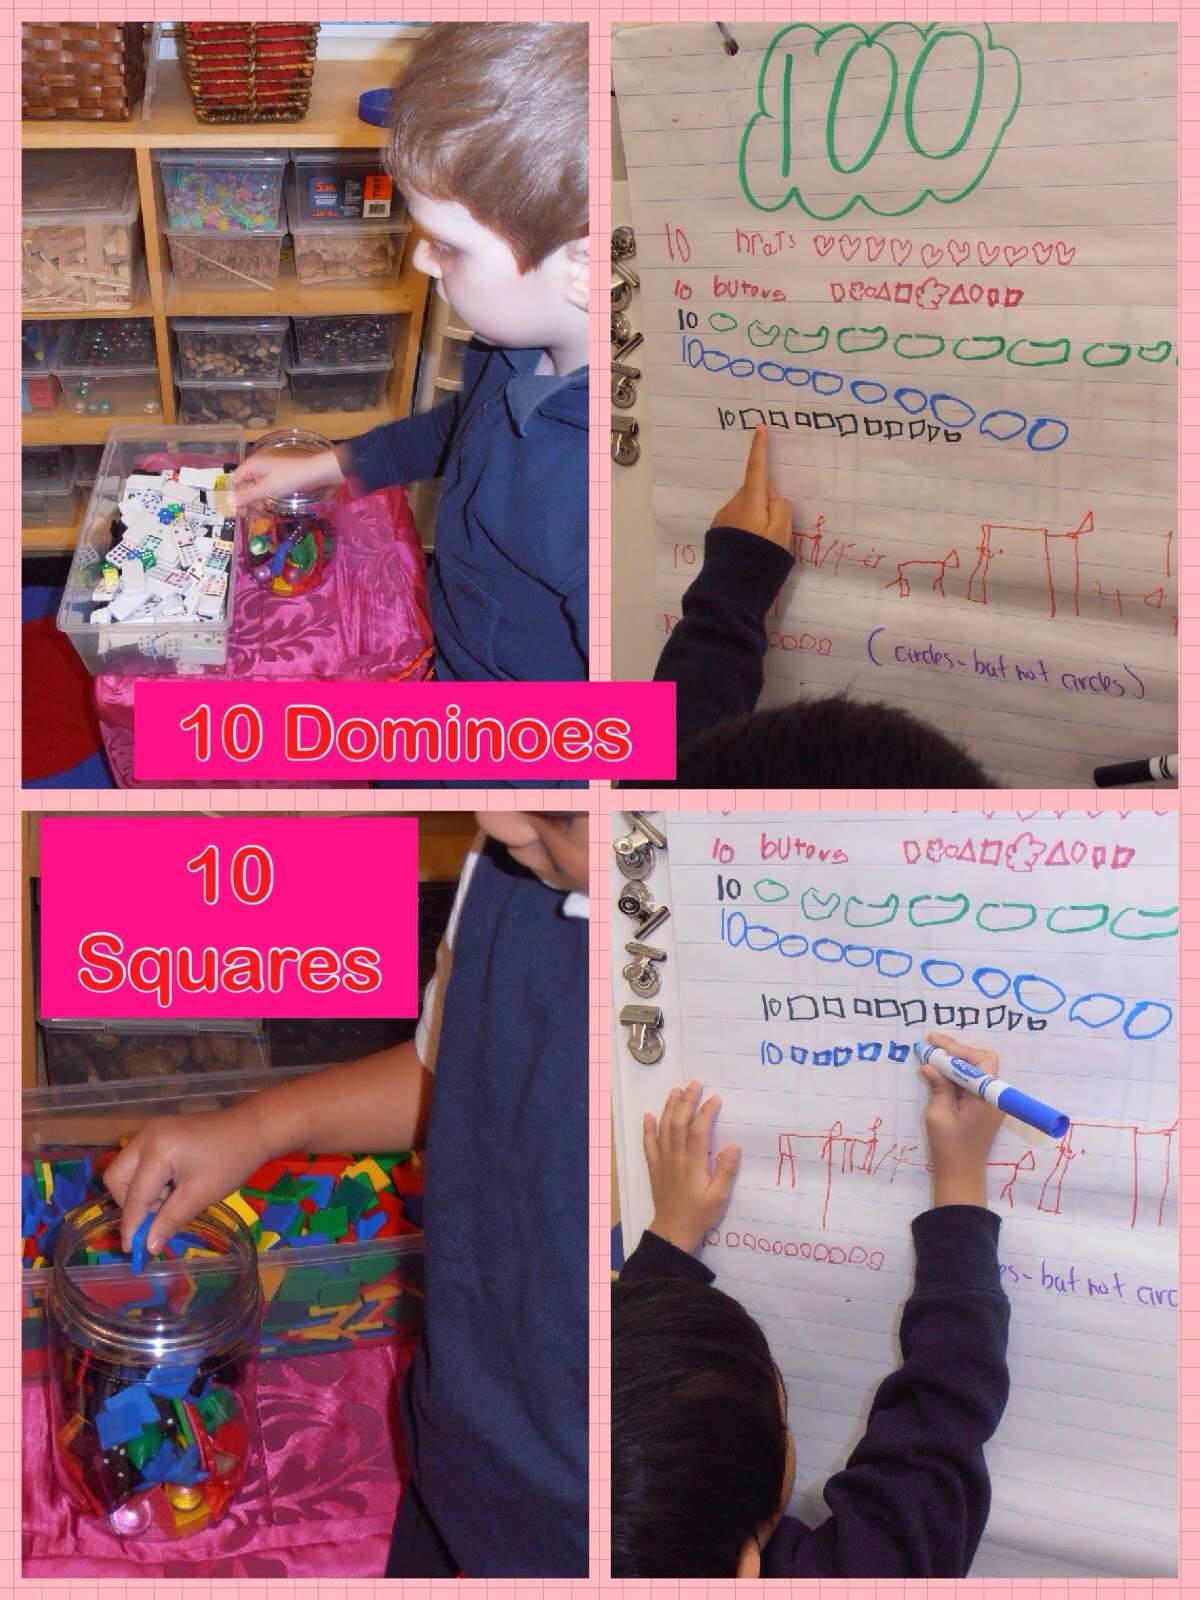 100
10 hrats
10 butors
10
10
10
10
(circles-but not circles)
10 Dominoes
10
Squares
10 butors
10
10
10
10
es-but not circ